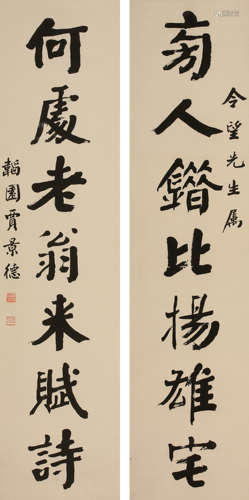 令望先生属
旁人錯比揚雄宅
何處老翁来賦詩
韜園賈景德